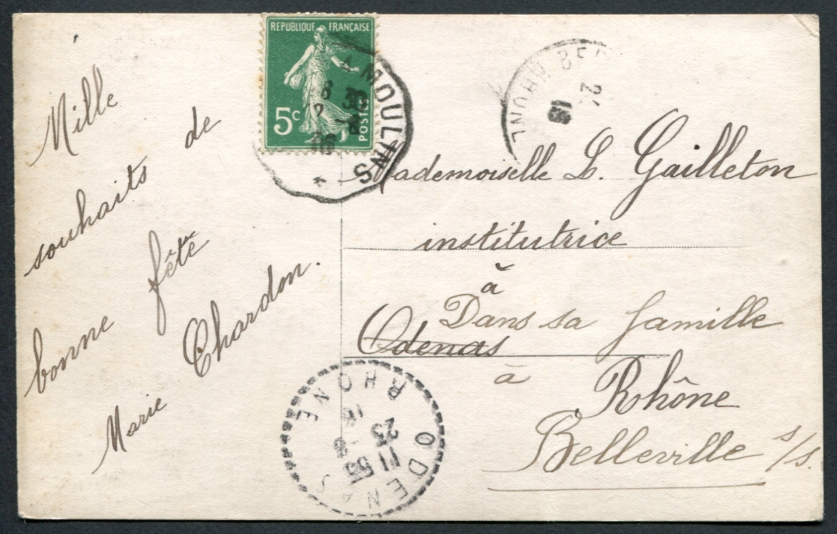 Mille
souhaits de
bonne fête
Marie Chardon.
REPUBLIQUE FRANÇAISE
5c
POSTES
MOULINS
RHONE
Mademoiselle L. Gailleton
institutrice
à
Dans sa famille
Odenas
à
Rhône
Belleville s/s.
ODENAS
RHONE
11 55
23